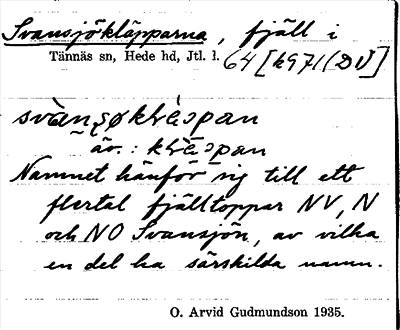 Svansjökläpparna, fjäll i
Tännäs sn, Hede hd, Jtl. l. 64 [k971(DV]
äv.:
Namnet hänför sig till ett
flertal fjälltoppar NV, N
och NO Svansjön, av vilka
en del ha särskilda namn.
O. Arvid Gudmundson 1935.